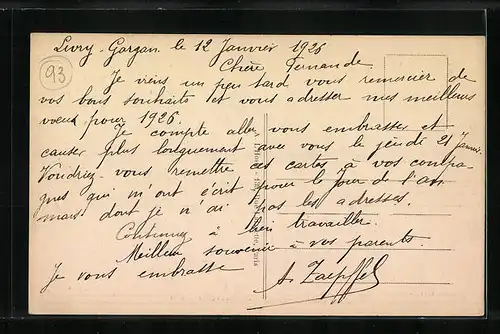 93
Livry-Gargan le 12 Janvier 1926
Chère Fernande
Je viens un peu tard vous remercier de
vos bons souhaits et vous adresser mes meilleurs
vœux pour 1926.
Je compte aller vous embrasser et
causer plus longuement avec vous le jeudi 21 Janvier.
Voudriez-vous remettre ces cartes à vos compa-
gnes qui m'ont écrit pour le Jour de l'an
mais dont je n'ai pas les adresses.
Continuez à bien travailler.
Meilleur souvenir à vos parents.
Je vous embrasse
A. Zaepffel